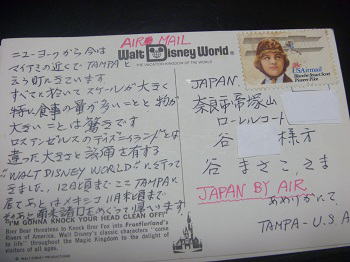 AIR MAIL
Walt Disney World®
THE VACATION KINGDOM OF THE WORLD
ニューヨークから今は
マイアミの近くでTAMPAと
えう町に来ています
すべてに於いてスケールが大きく
特に食事の量が多いことと物が
大きいことは驚きです
ロスアンゼルスのディズニーランドとは
違った大きさと設備を有する
"WALT DISNEY WORLD"に行って
きました。12日頃までここTAMPAに
居てあとはメキシコ 11月末頃まで
そのあと南米諸国をめぐって帰ります
"I'M GONNA KNOCK YOUR HEAD CLEAN OFF!"
Brer Bear threatens to Knock Brer Fox into Frontierland's
Rivers of America. Walt Disney's classic characters "come
to life" throughout the Magic Kingdom to the delight of
visitors of all ages.
© WALT DISNEY PRODUCTIONS
USAirmail
Blanche Stuart Scott
Pioneer Pilot
JAPAN.
奈良市帝塚山
ローレルコート
谷 様方
谷 まさこ さま
JAPAN BY AIR
あめりかにて
TAMPA - U.S.A